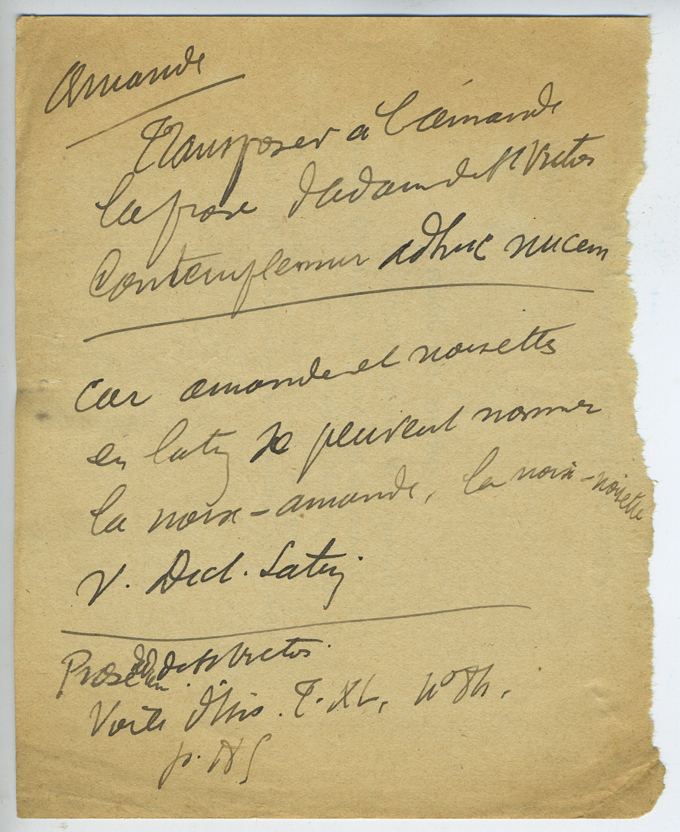 Amande
Transposer à l'amande
la prose d'adam de St Victor
Contemplemur adhuc nucem
Car amande et noisette
en latin se peuvent nommer
la noix-amande, la noix-noisette
V. Dict. Latin
Prose d'adam de St Victor.
Voile d'Isis. T. XL, n° 84.
p.